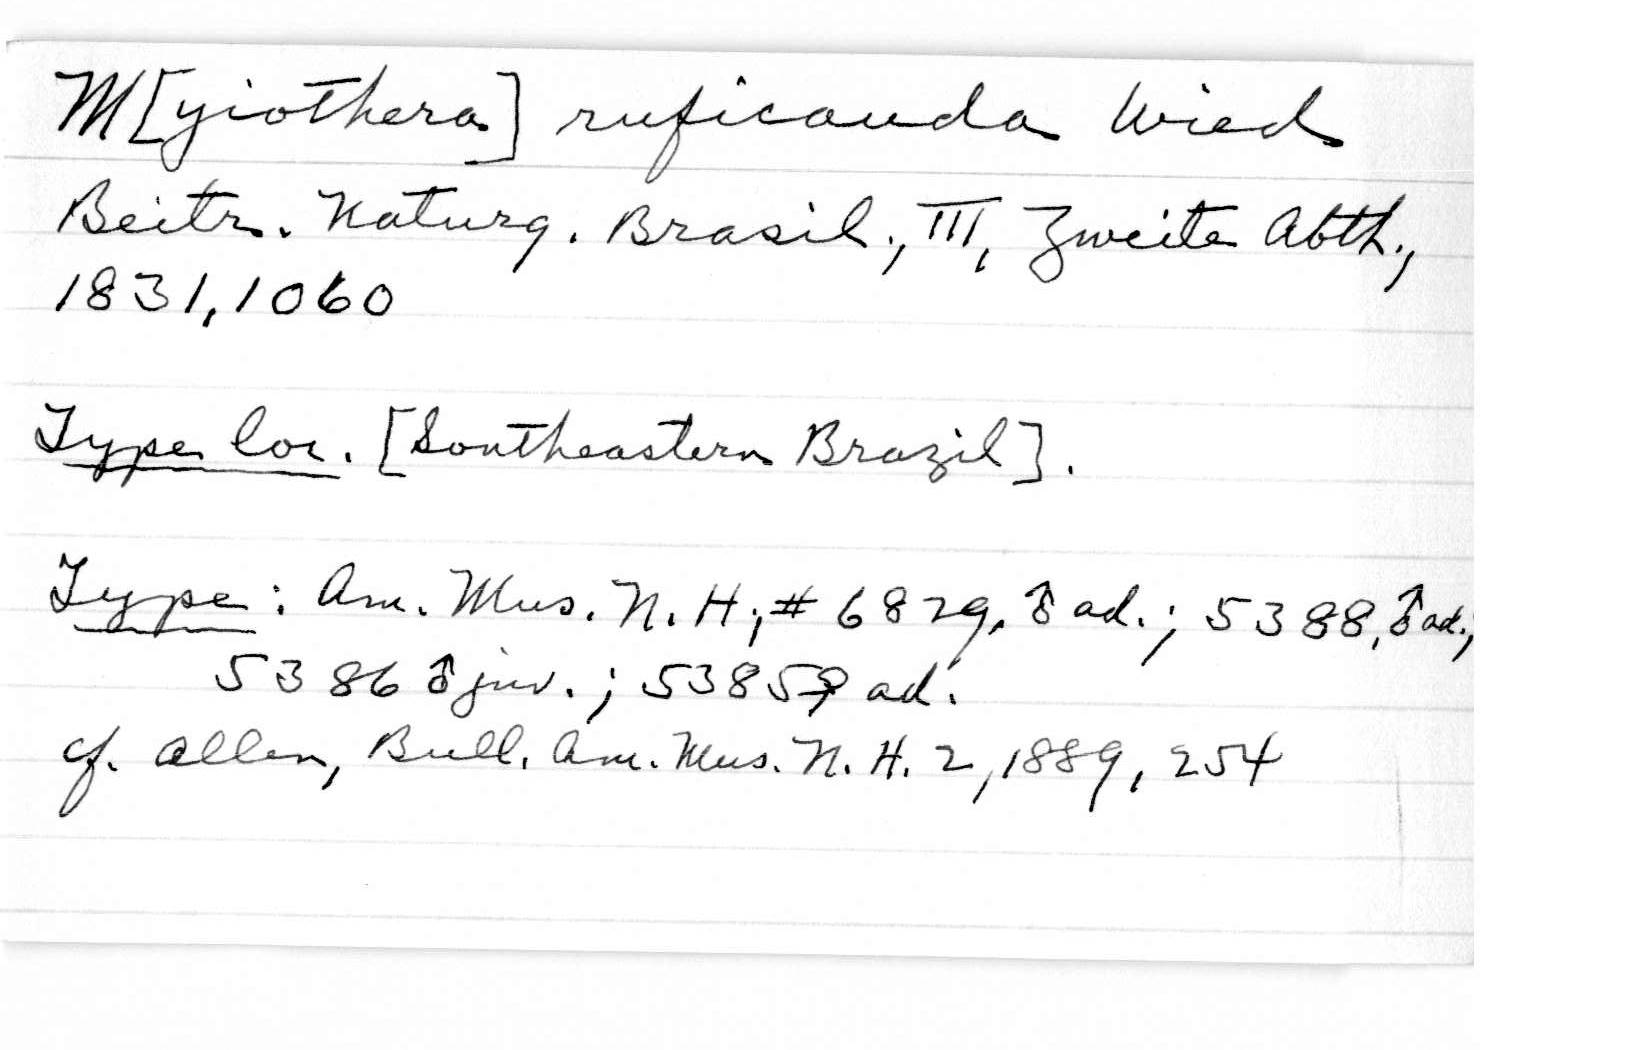 M[yiothera] ruficauda Wied
Beitr. Naturg. Brasil., III, Zweite Abth.,
1831, 1060
Type loc. [Southeastern Brazil].
Type: Am. Mus. N. H; # 6829, ♂ ad.; 5388, ♂ ad.;
5386 ♂ juv.; 5385 ♀ ad.
cf. Allen, Bull. Am. Mus. N. H. 2, 1889, 254